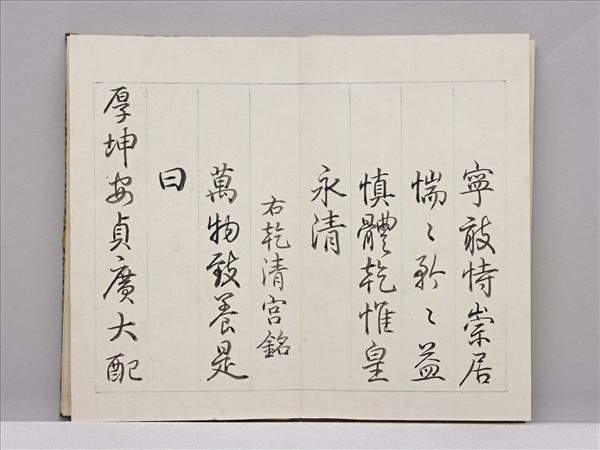 寧敢恃崇居
惴〻矜〻益
慎體乾惟皇
永清
右乾清宮銘
萬物致養是
曰
厚坤安貞廣大配